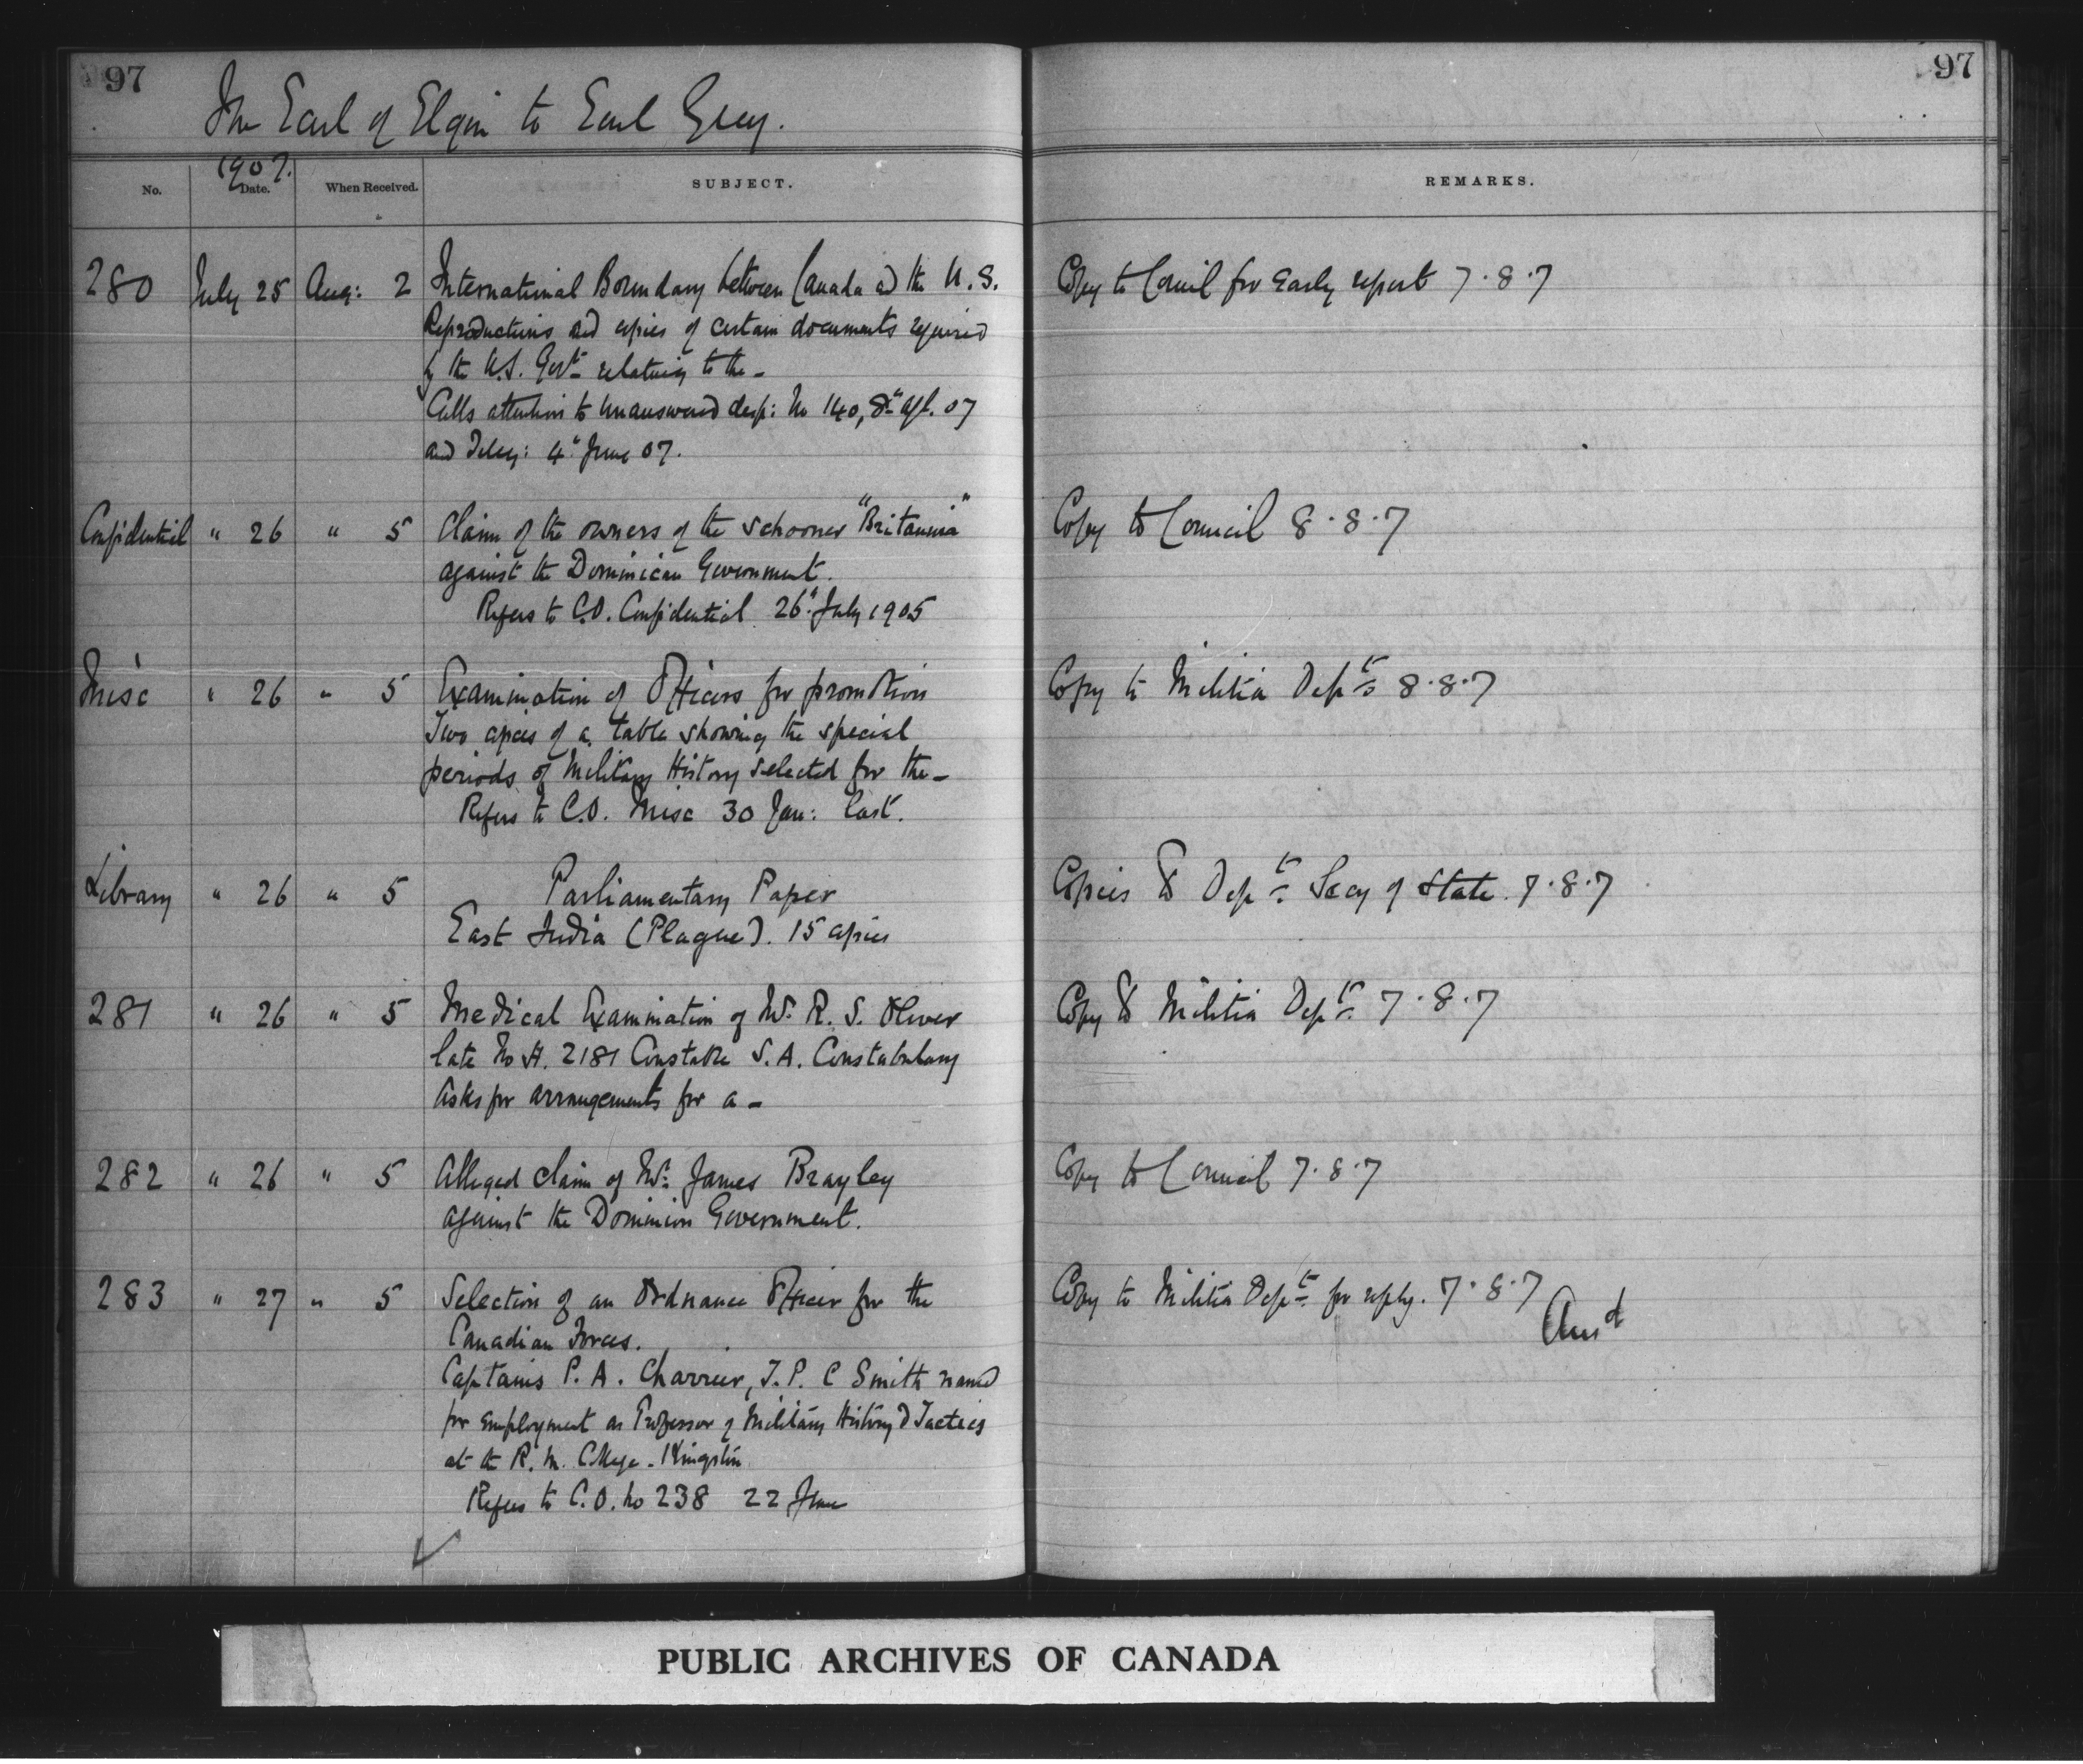 97
97
The Earl of Elgin to Earl Grey.
1907.
No.
Date.
When Received.
SUBJECT.
REMARKS.
280 July 25 Aug: 2 International Boundary between Canada and the U.S. Copy to Council for early report 7.8.7
Reproductions and copies of certain documents required
by the U.S. Govt relating to the -
Calls attention to unanswered desp: No 140, 8th Apl. 07
and Teleg: 4" June 07.
Confidential " 26 " 5 Claim of the owners of the schooner "Britannia" Copy to Council 8.8.7
against the Dominican Government.
Refers to C.O. Confidential 26" July 1905
Misc " 26 " 5 Examination of Officers for promotion Copy to Militia Dept 8.8.7
Two copies of a table showing the special
periods of Military History selected for the -
Refers to C.O. Misc 30 Jan: last.
Library " 26 " 5 Parliamentary Paper Copies to Dept Secy of State. 7.8.7
East India (Plague). 15 copies
281 " 26 " 5 Medical Examination of Mr. R. S. Oliver Copy to Militia Dept 7.8.7
late No A. 2181 Constable S. A. Constabulary
Asks for arrangements for a -
282 " 26 " 5 Alleged claim of Mr. James Brayley Copy to Council 7.8.7
against the Dominion Government.
283 " 27 " 5 Selection of an Ordnance Officer for the Copy to Militia Dept for reply. 7.8.7
Ansd
Canadian Forces.
Captains P. A. Charrier, J. P. C Smith named
for employment as Professor of Military History & Tactics
at the R. M. College - Kingston
Refers to C.O. No 238 22 June
PUBLIC ARCHIVES OF CANADA